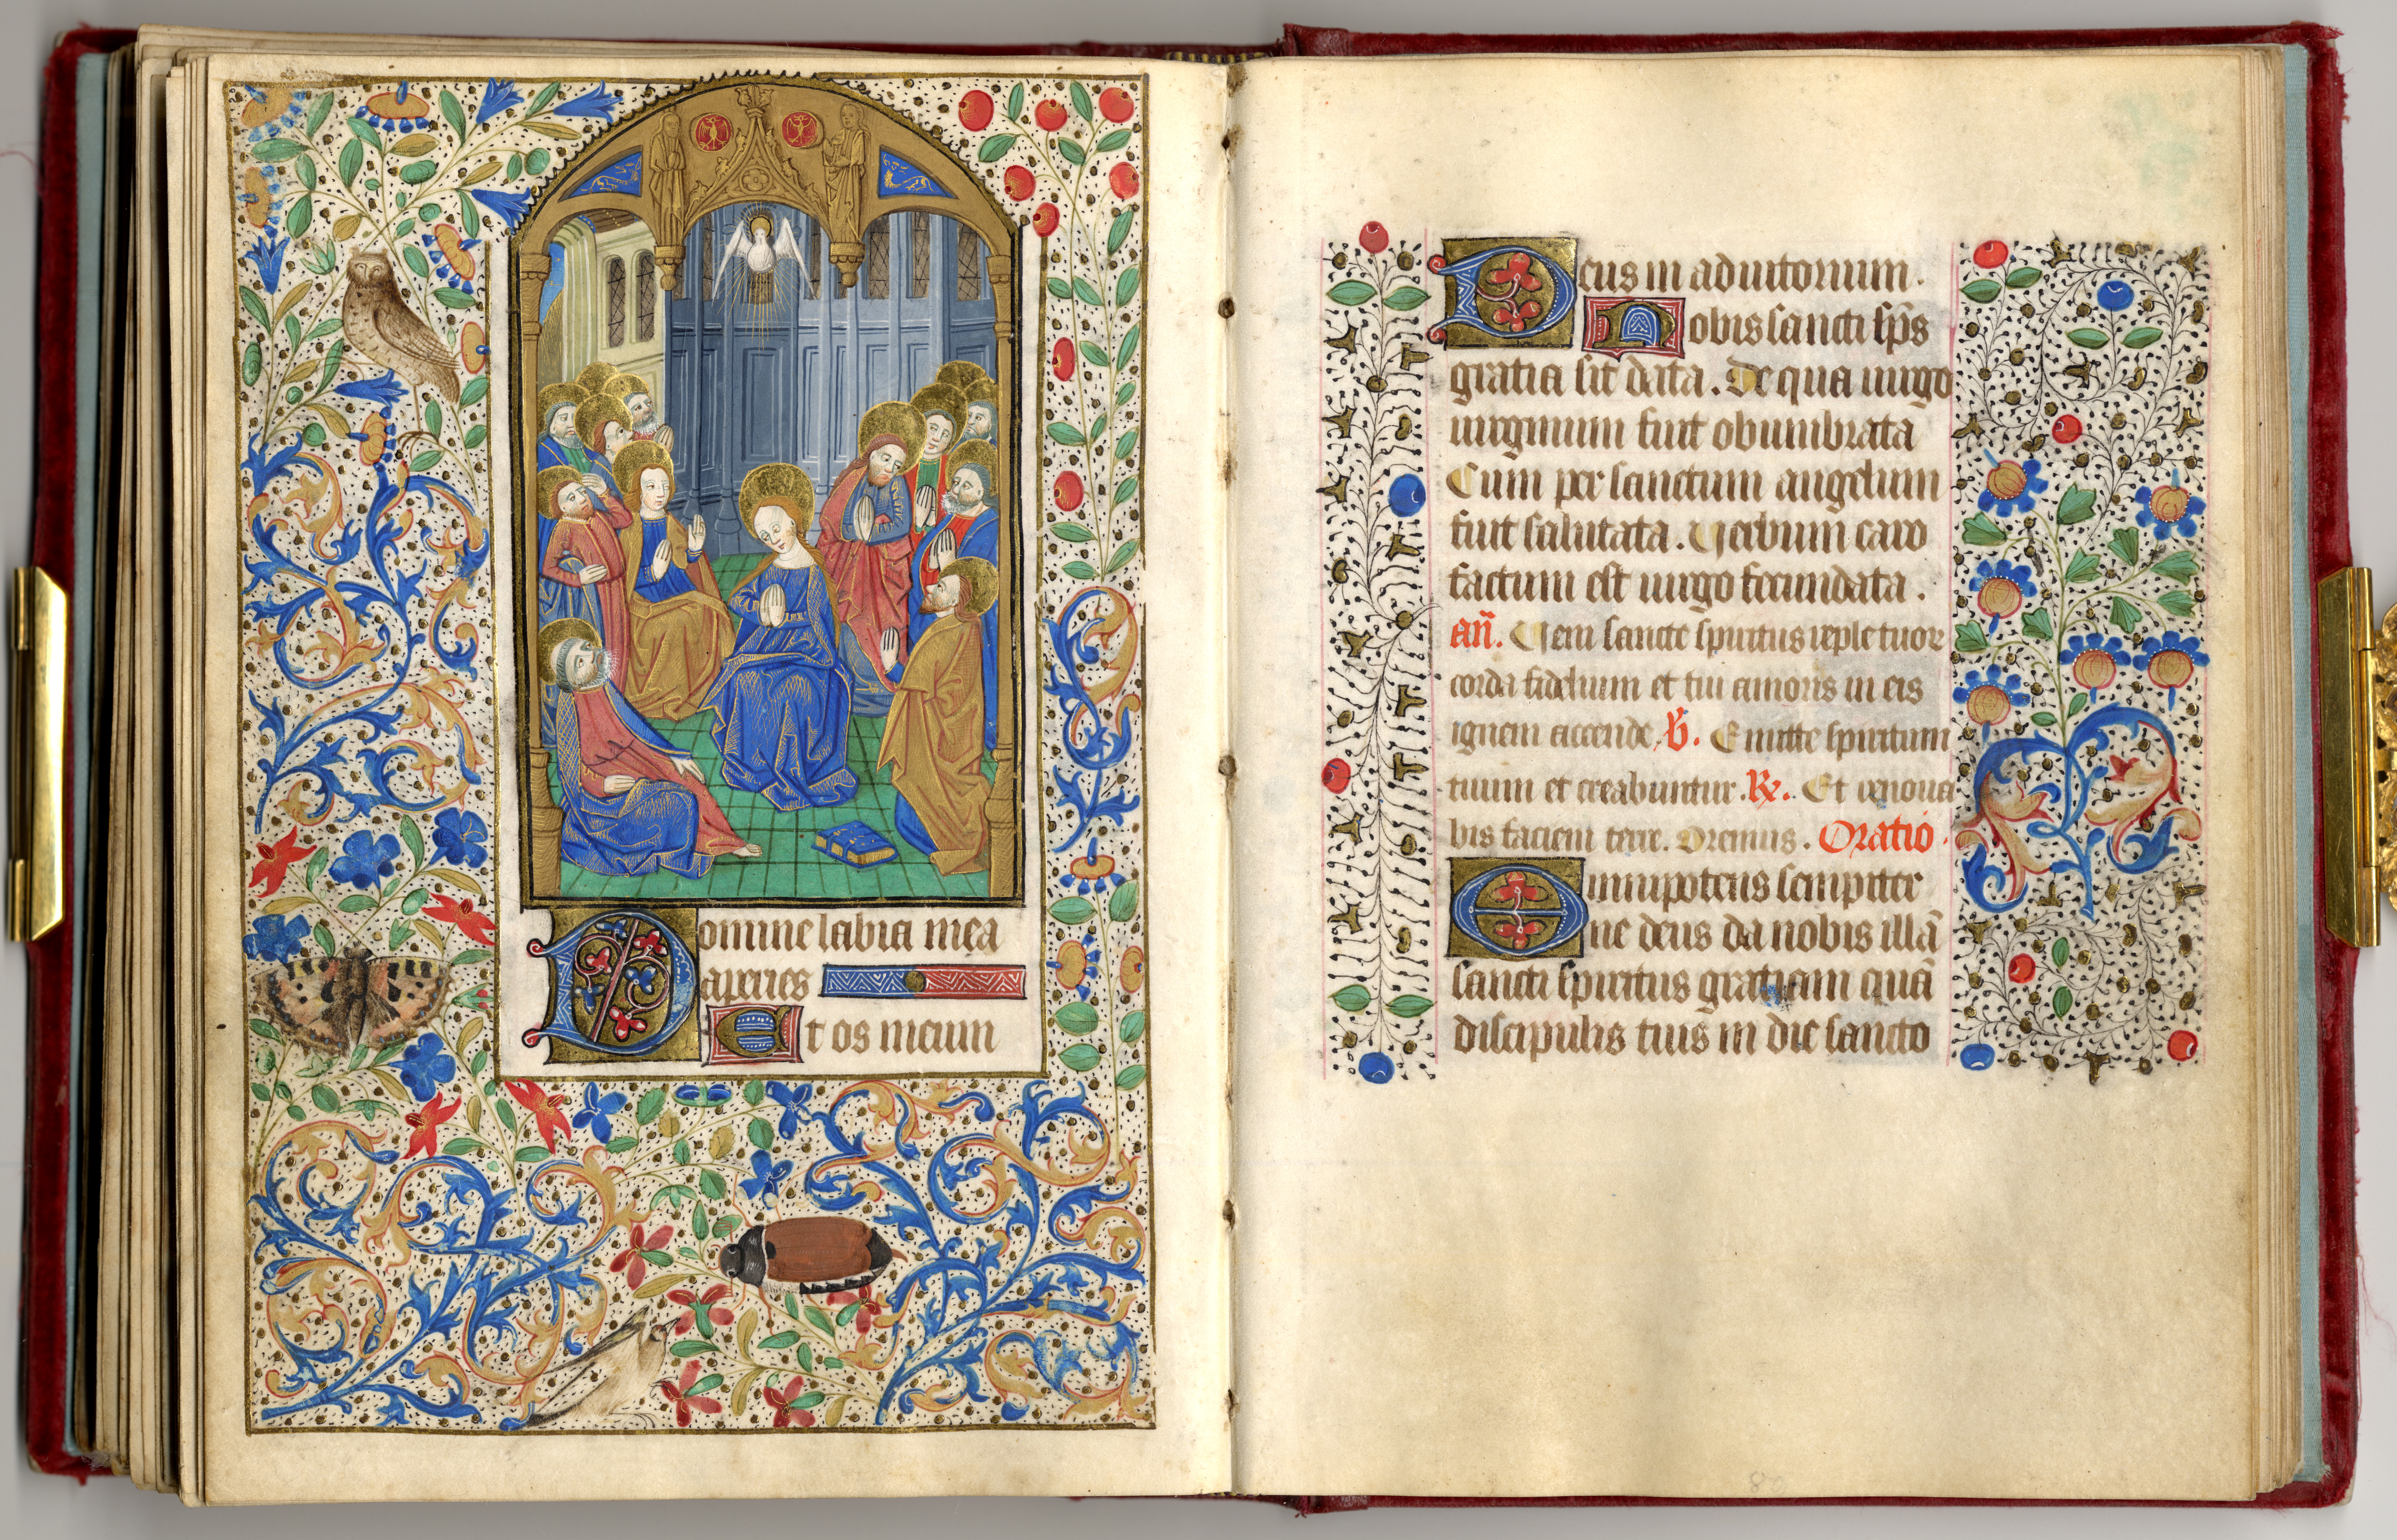 Domine labia mea
aperies
Et os meum
Deus in adiutorium.
Nobis sancti sp̄s
gratia sit data. De qua uirgo
uirginum fuit obumbrata
Cum per sanctum angelum
fuit salutata. Uerbum caro
factum est uirgo fecundata.
an̄. Ueni sancte spiritus reple tuor
corda fidelium et tui amoris in eis
ignem accende. V̸. Emitte spiritum
tuum et creabuntur. R̸. Et renoua
bis faciem terre. Oremus. Oratio.
Omnipotens sempiter
ne deus da nobis illā
sancti spiritus gratiam quā
discipulis tuis in die sancto